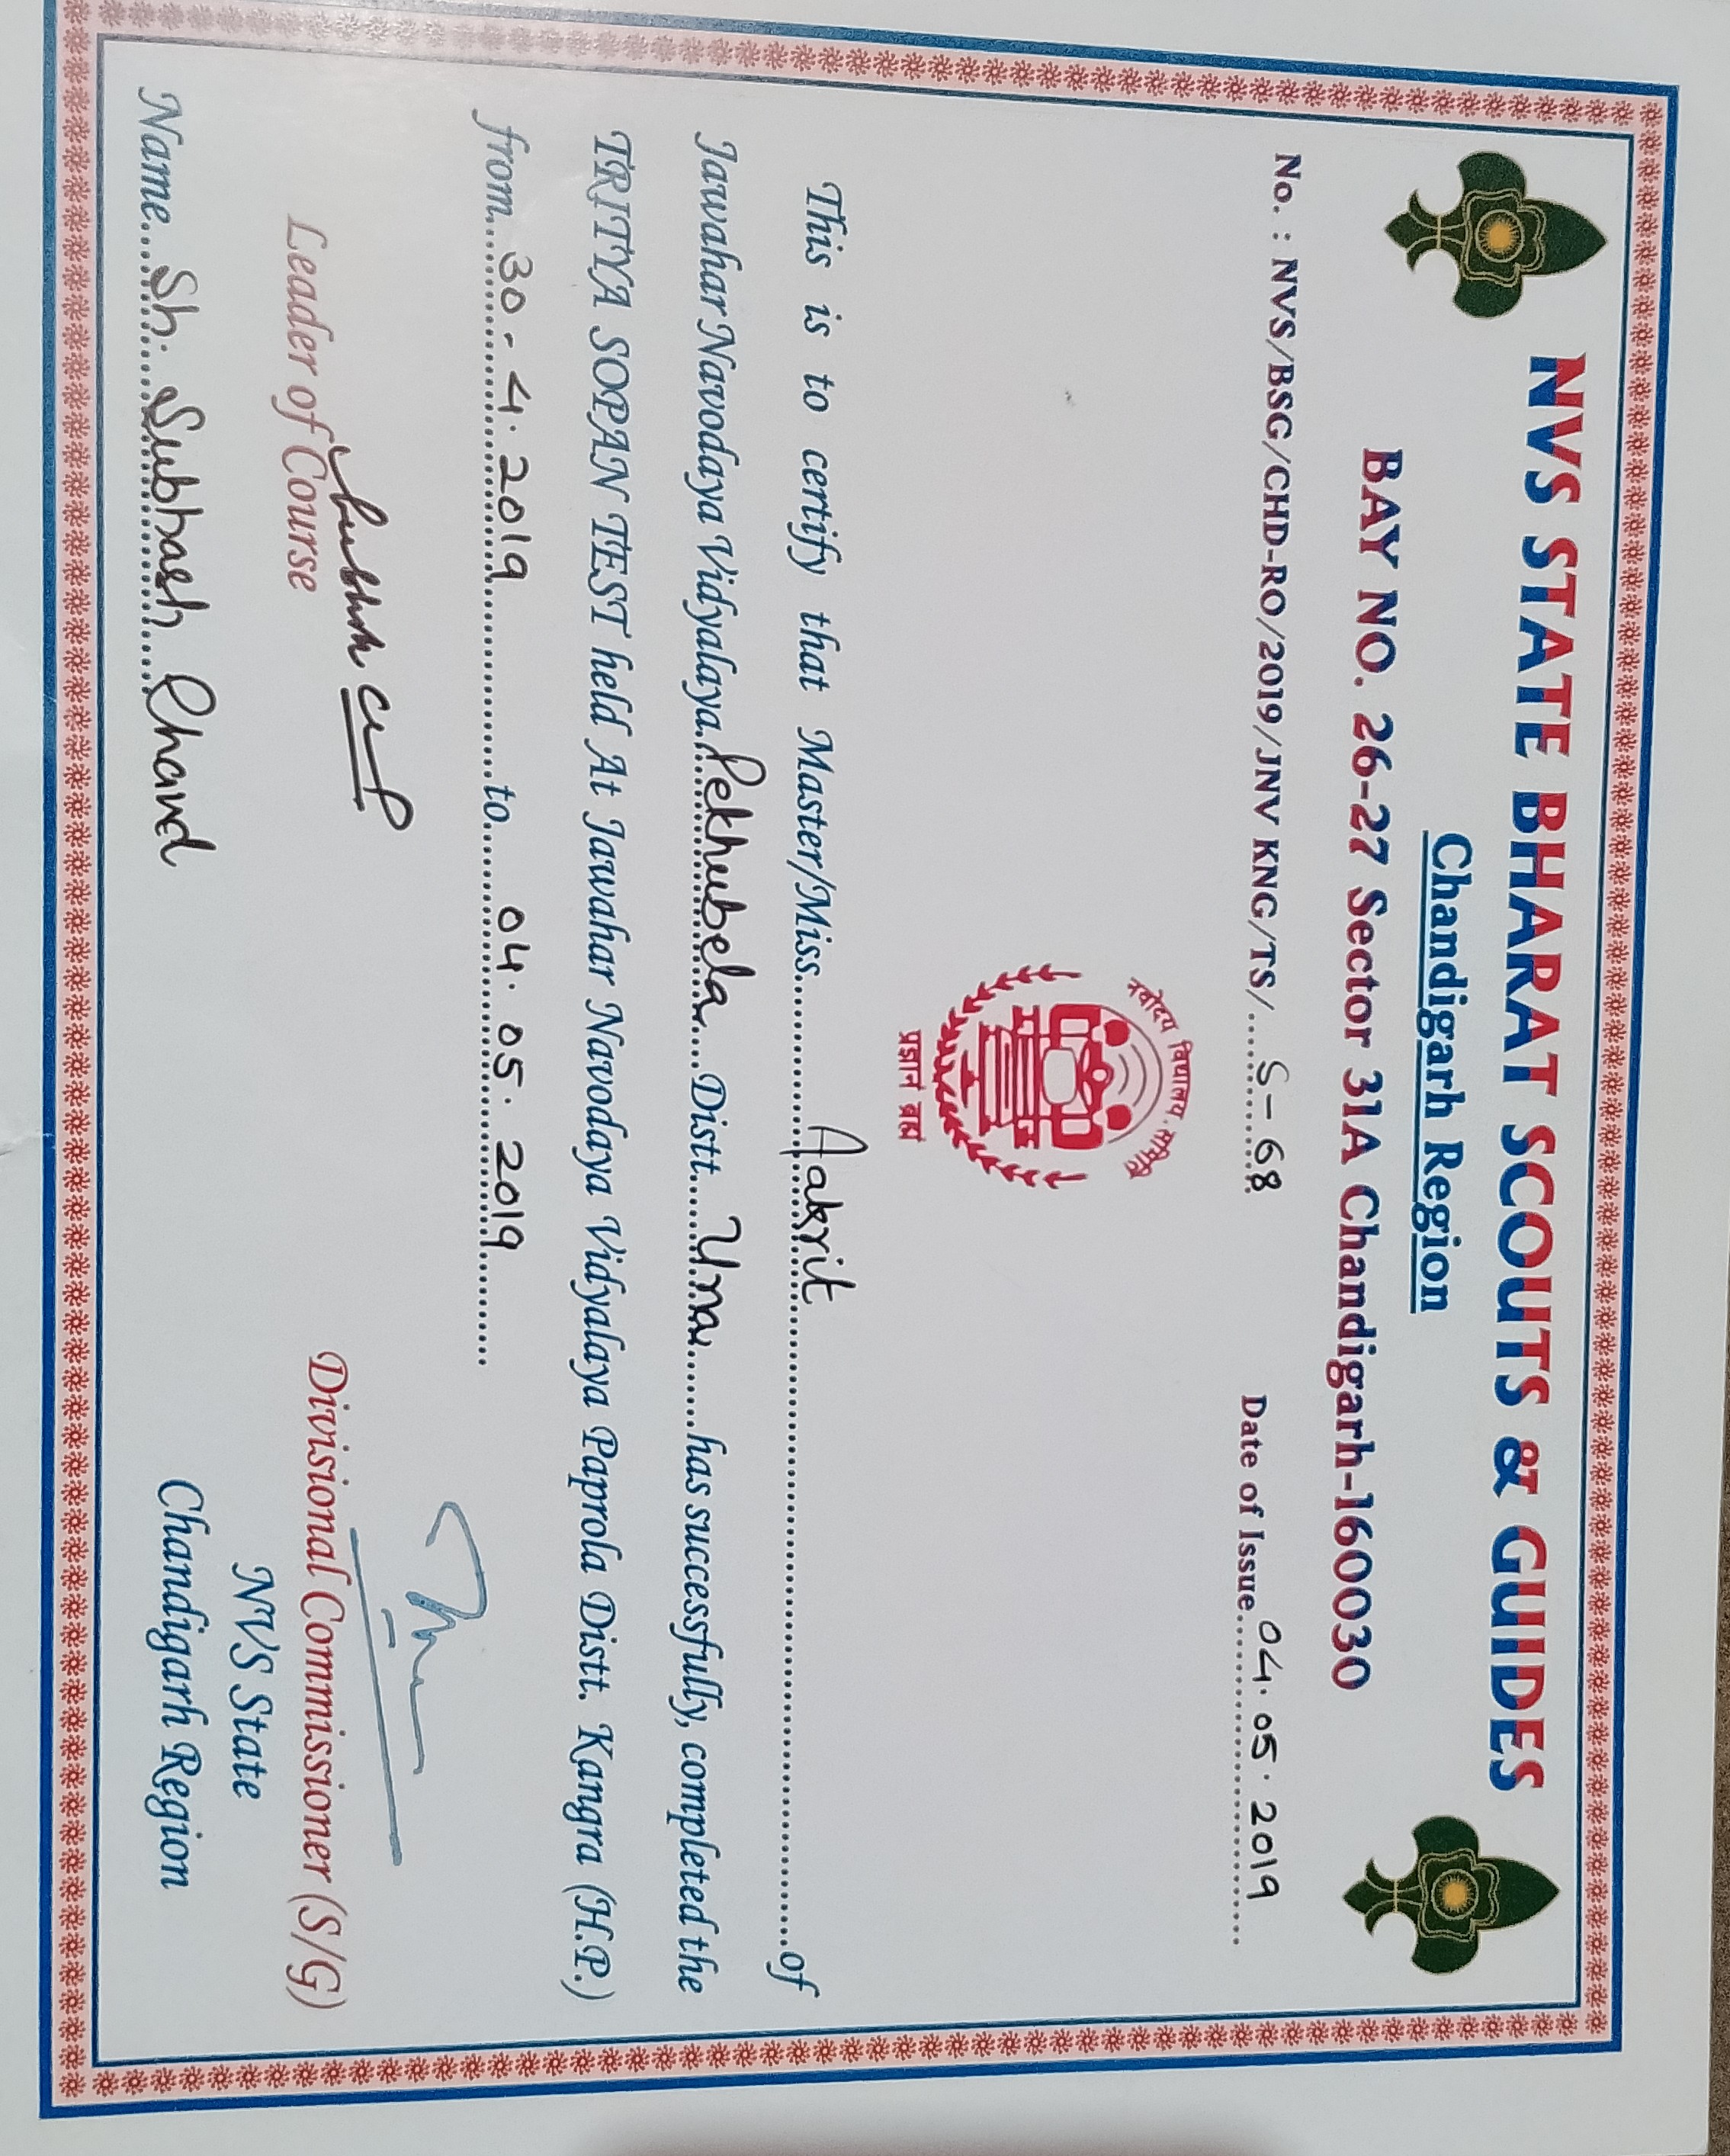 NVS STATE BHARAT SCOUTS & GUIDES
Chandigarh Region
BAY NO. 26-27 Sector 31A Chandigarh-160030
No. : NVS/BSG/CHD-RO/2019/JNV KNG/TS/....S-68 Date of Issue 04.05.2019
नवोदय विद्यालय समिति
प्रज्ञानं ब्रह्म
This is to certify that Master/Miss Aakrit of
Jawahar Navodaya Vidyalaya Pekhubela Distt. Una has successfully, completed the
TRITYA SOPAN TEST held At Jawahar Navodaya Vidyalaya Paprola Distt. Kangra (H.P.)
from 30-4.2019 to 04.05.2019
Subhash Chand
Leader of Course Divisional Commissioner (S/G)
NVS State
Name Sh. Subhash Chand Chandigarh Region